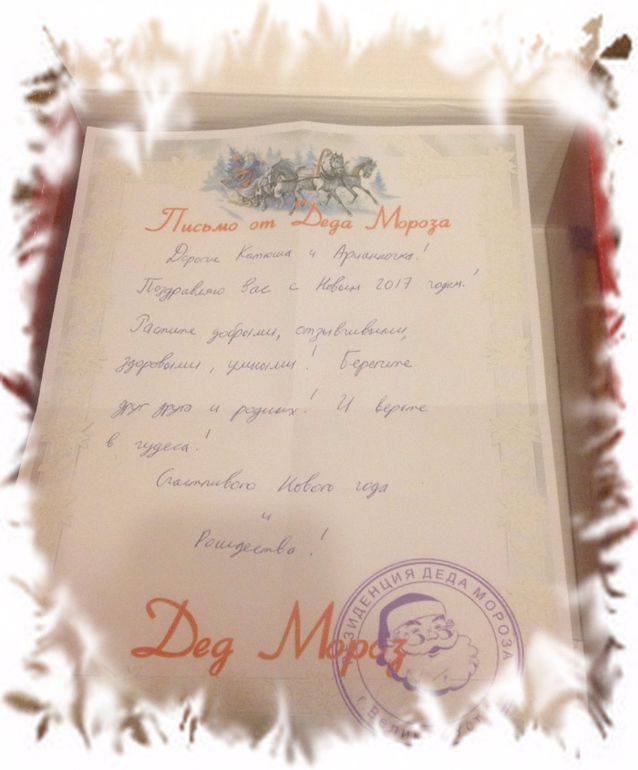 Письмо от Деда Мороза
Дорогие Катюша и Арианочка!
Поздравляю Вас с Новым 2017 годом!
Растите добрыми, отзывчивыми,
здоровыми, умными! Берегите
друг друга и родных! И верьте
в чудеса!
Счастливого Нового года
и
Рождества!
Дед Мороз
ЗИДЕНЦИЯ ДЕДА МОРОЗА